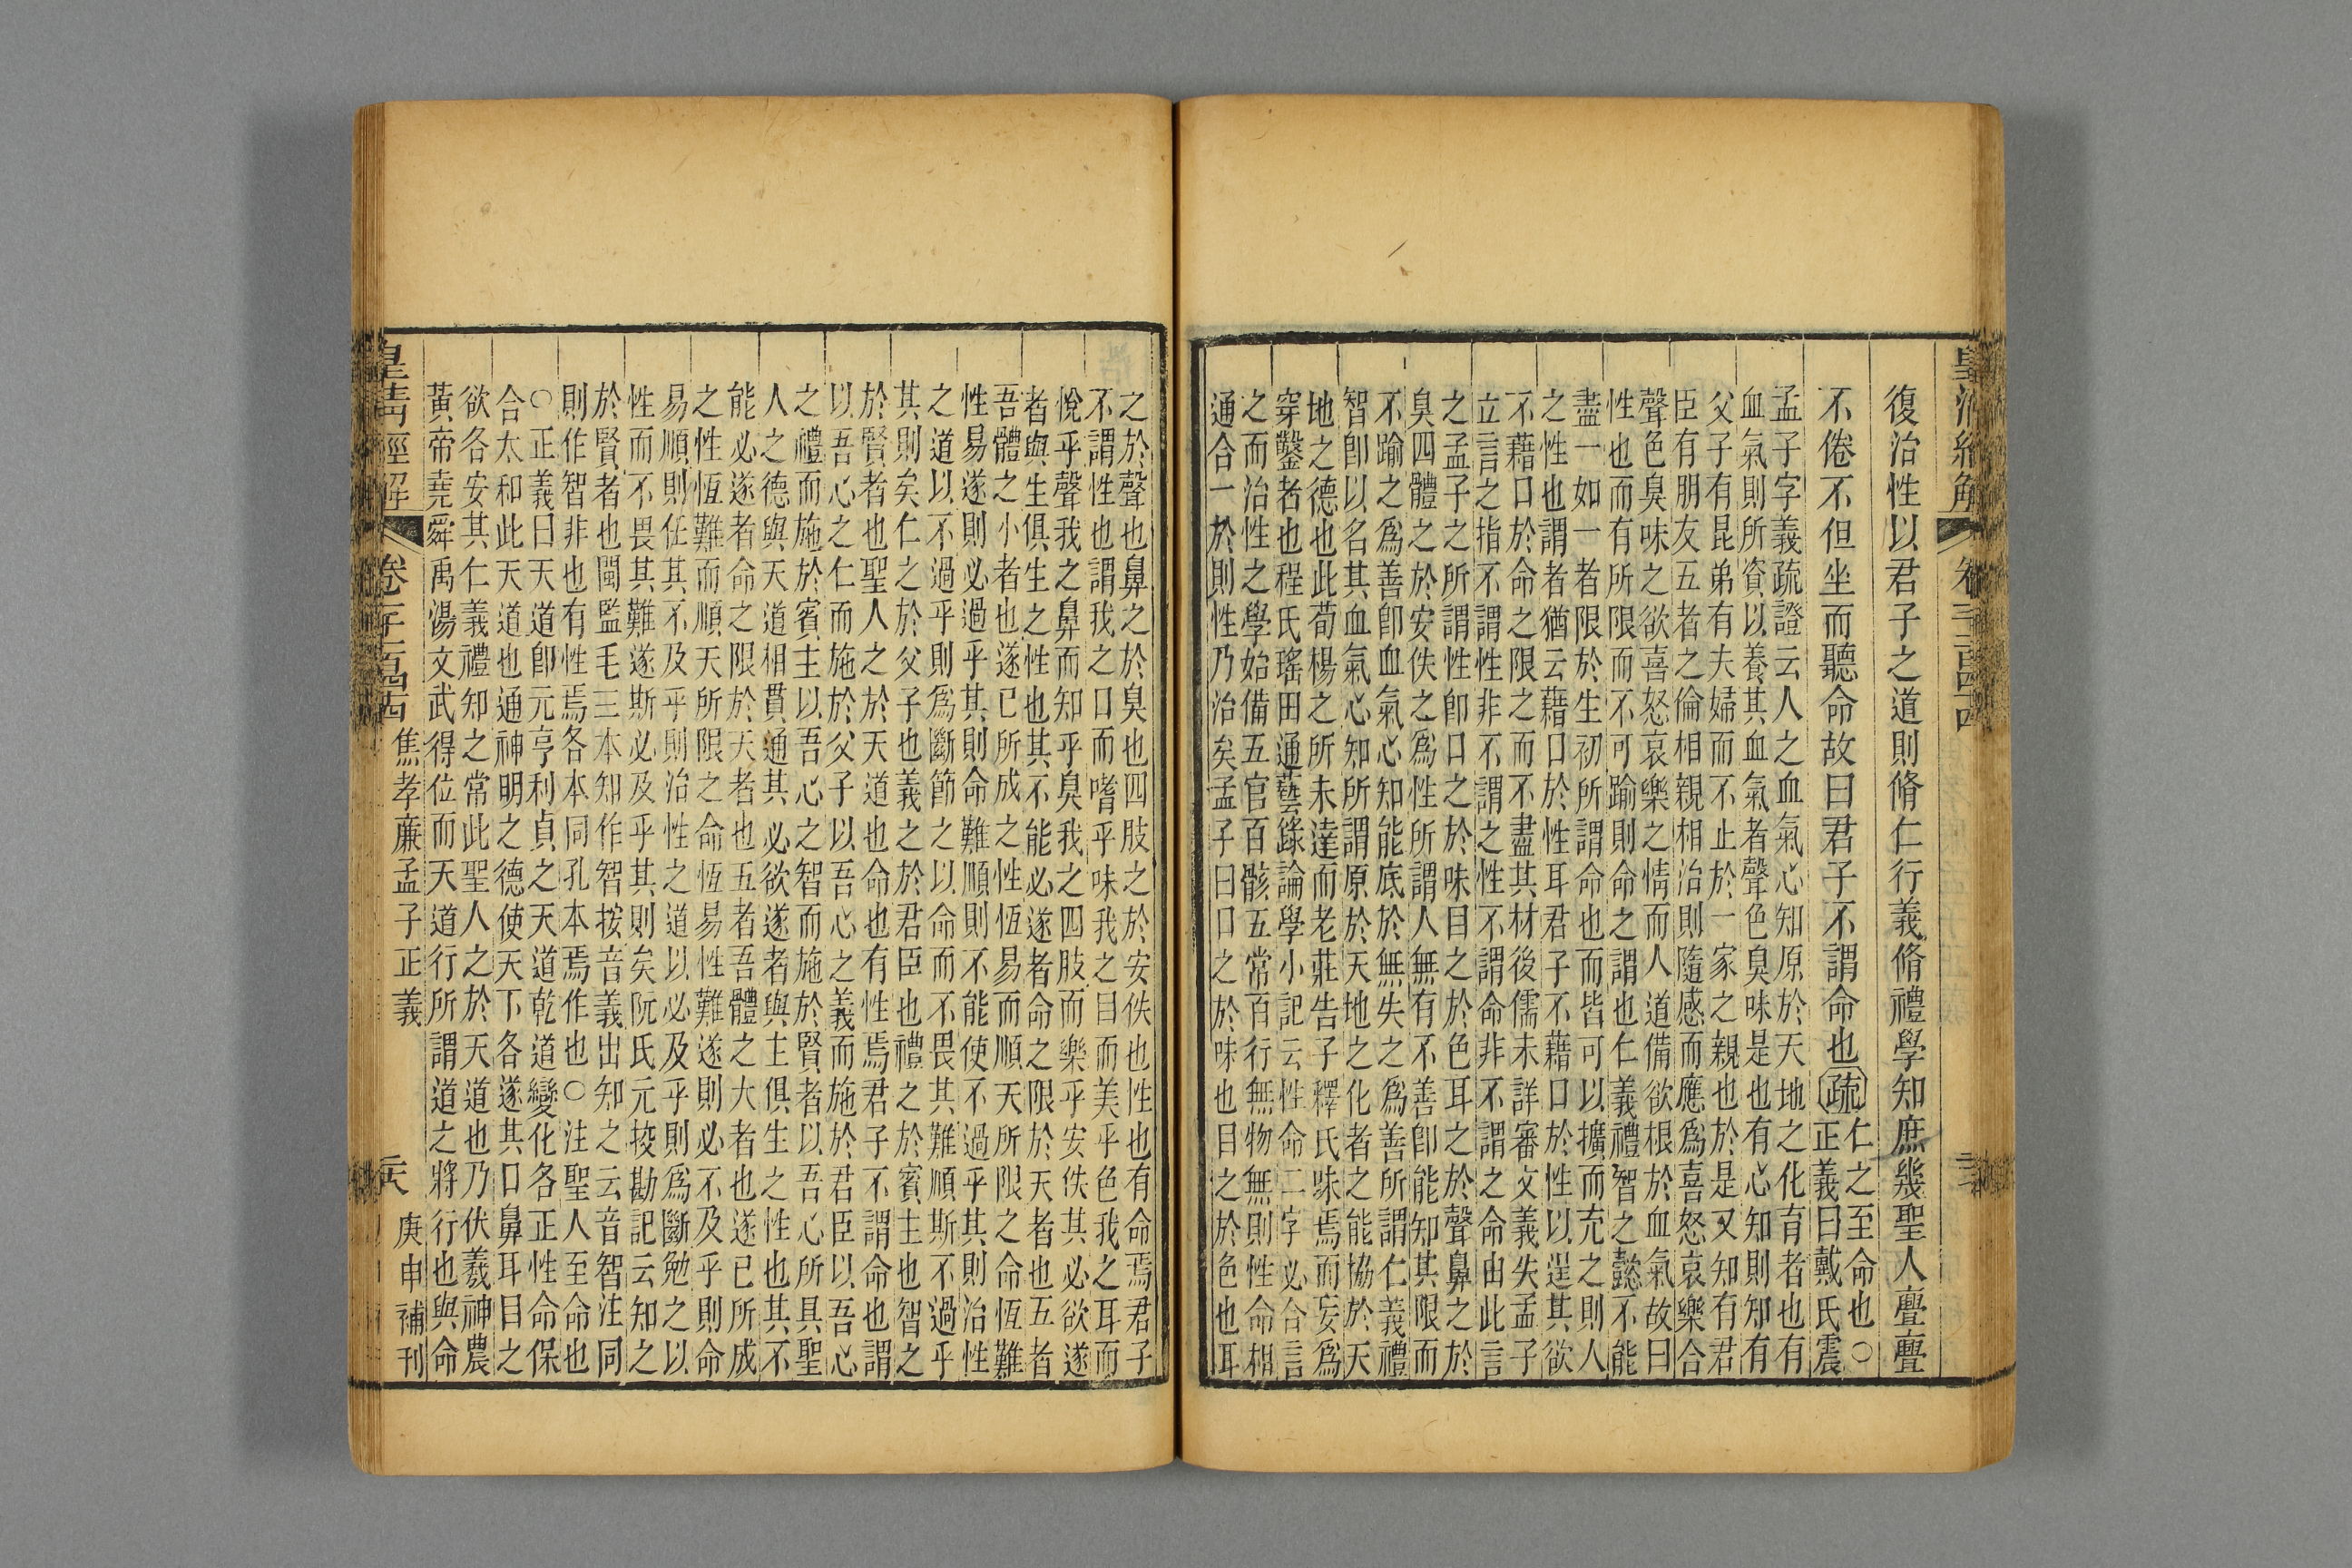 皇清經解
卷一千一百四十四
復治性以君子之道則脩仁行義脩禮學知庶幾聖人亹亹
不倦不但坐而聽命故曰君子不謂命也疏仁之至命也○
正義曰戴氏震
孟子字義疏證云人之血氣心知原於天地之化育者也有
血氣則所資以養其血氣者聲色臭味是也有心知則知有
父子有昆弟有夫婦而不止於一家之親也於是又知有君
臣有朋友五者之倫相親相治則隨感而應爲喜怒哀樂合
聲色臭味之欲喜怒哀樂之情而人道備欲根於血氣故曰
性也而有所限而不可踰則命之謂也仁義禮智之懿不能
盡一如一者限於生初所謂命也而皆可以擴而充之則人
之性也謂者猶云藉口於性耳君子不藉口於性以逞其欲
不藉口於命之限之而不盡其材後儒未詳審文義失孟子
立言之指不謂性非不謂之性不謂命非不謂之命由此言
之孟子之所謂性卽口之於味目之於色耳之於聲鼻之於
臭四體之於安佚之爲性所謂人無有不善卽能知其限而
不踰之爲善卽血氣心知能底於無失之爲善所謂仁義禮
智卽以名其血氣心知所謂原於天地之化者之能協於天
地之德也此荀楊之所未達而老莊告子釋氏味焉而妄爲
穿鑿者也程氏瑤田通藝錄論學小記云性命二字必合言
之而治性之學始備五官百骸五常百行無物無則性命相
通合一於則性乃治矣孟子曰口之於味也目之於色也耳
之於聲也鼻之於臭也四肢之於安佚也性也有命焉君子
不謂性也謂我之口而嗜乎味我之目而美乎色我之耳而
悅乎聲我之鼻而知乎臭我之四肢而樂乎安佚其必欲遂
者與生俱生之性也其不能必遂者命之限於天者也五者
吾體之小者也遂已所成之性恆易而順天所限之命恆難
性易遂則必過乎其則命難順則不能使不過乎其則治性
之道以不過乎則爲斷節之以命而不畏其難順斯不過乎
其則矣仁之於父子也義之於君臣也禮之於賓主也智之
於賢者也聖人之於天道也命也有性焉君子不謂命也謂
以吾心之仁而施於父子以吾心之義而施於君臣以吾心
之禮而施於賓主以吾心之智而施於賢者以吾心所具聖
人之德與天道相貫通其必欲遂者與主俱生之性也其不
能必遂者命之限於天者也五者吾體之大者也遂已所成
之性恆難而順天所限之命恆易性難遂則必不及乎則命
易順則任其不及乎則治性之道以必及乎則爲斷勉之以
性而不畏其難遂斯必及乎其則矣阮氏元挍勘記云知之
於賢者也閩監毛三本知作智按音義出知之云音智注同
則作智非也有性焉各本同孔本焉作也○注聖人至命也
○正義曰天道卽元亨利貞之天道乾道變化各正性命保
合太和此天道也通神明之德使天下各遂其口鼻耳目之
欲各安其仁義禮知之常此聖人之於天道也乃伏羲神農
黃帝堯舜禹湯文武得位而天道行所謂道之將行也與命
皇淸經解
卷一千一百四十四
焦孝廉孟子正義
庚申補刊